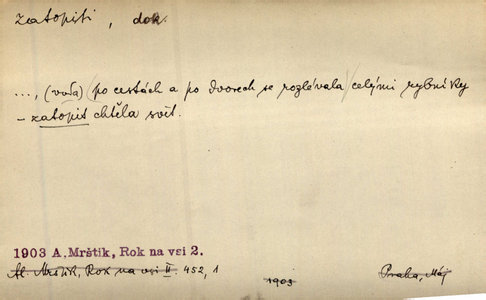 zatopiti, dok.
..., (voda) po cestách a po dvorech se rozlévala celými rybníky
– zatopit chtěla svět.
1903 A. Mrštík, Rok na vsi 2.
Al. Mrštík, Rok na vsi II. 452, 1
1903
Praha, Máj